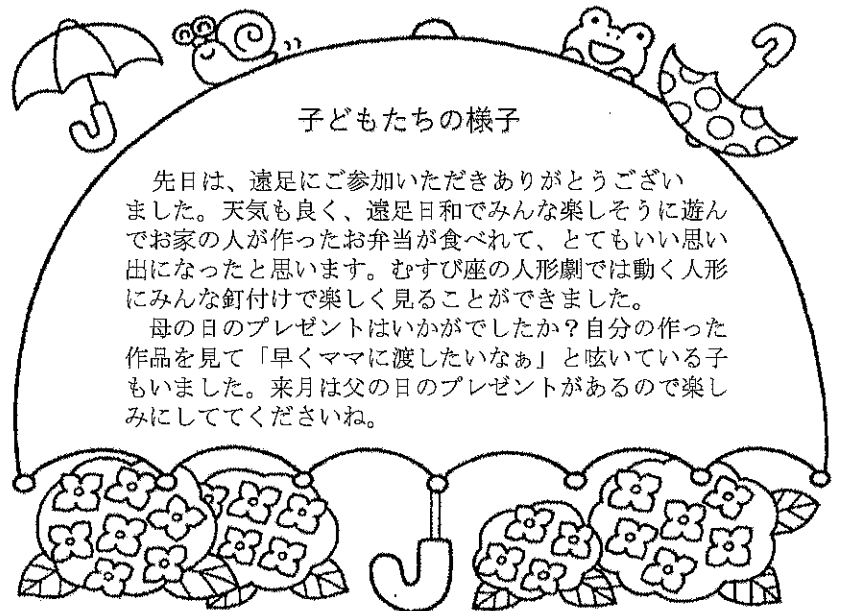 子どもたちの様子
先日は、遠足にご参加いただきありがとうござい
ました。天気も良く、遠足日和でみんな楽しそうに遊ん
でお家の人が作ったお弁当が食べれて、とてもいい思い
出になったと思います。むすび座の人形劇では動く人形
にみんな釘付けで楽しく見ることができました。
母の日のプレゼントはいかがでしたか？自分の作った
作品を見て「早くママに渡したいなぁ」と呟いている子
もいました。来月は父の日のプレゼントがあるので楽し
みにしててくださいね。